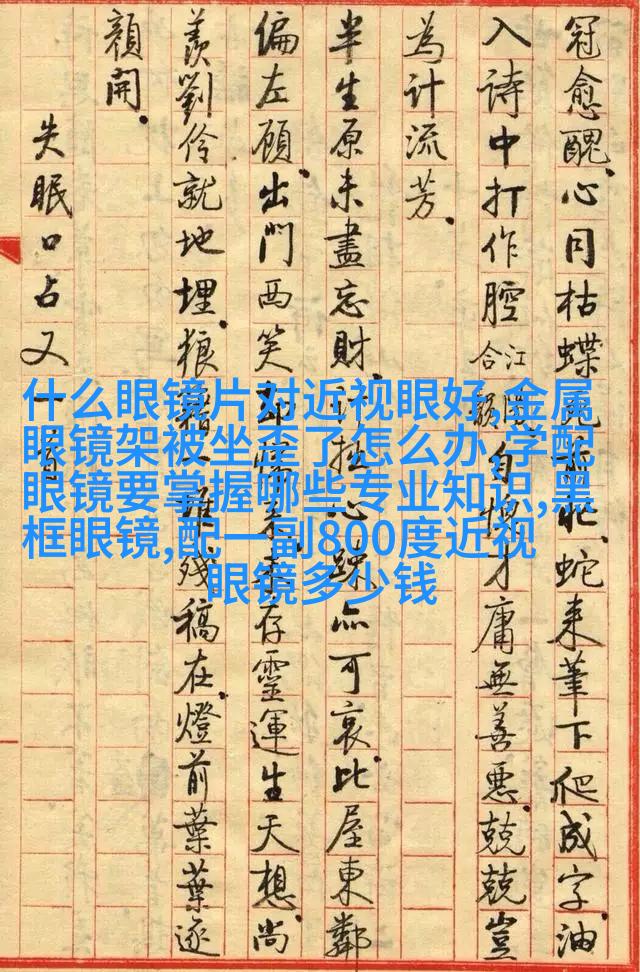 冠愈醜.心同枯蝶 蛇来筆下爬成字.油
入詩中打作腔 合江 自愧才庸無善惡.兢兢豈
為計流芳.
半生原未盡忘財.計拙心疎亦可哀.比屋東鄰
偏左顧.出門西笑即 来 存靈運生天想.尚
羨劉伶就地埋.狼藉一堆殘稿在.燈前葉葉逐
顏開.
失眠口占又一首
什么眼镜片对近视眼好,金属
眼镜架被坐歪了怎么办,学配
眼镜要掌握哪些专业知识,黑
框眼镜,配一副800度近视
眼镜多少钱